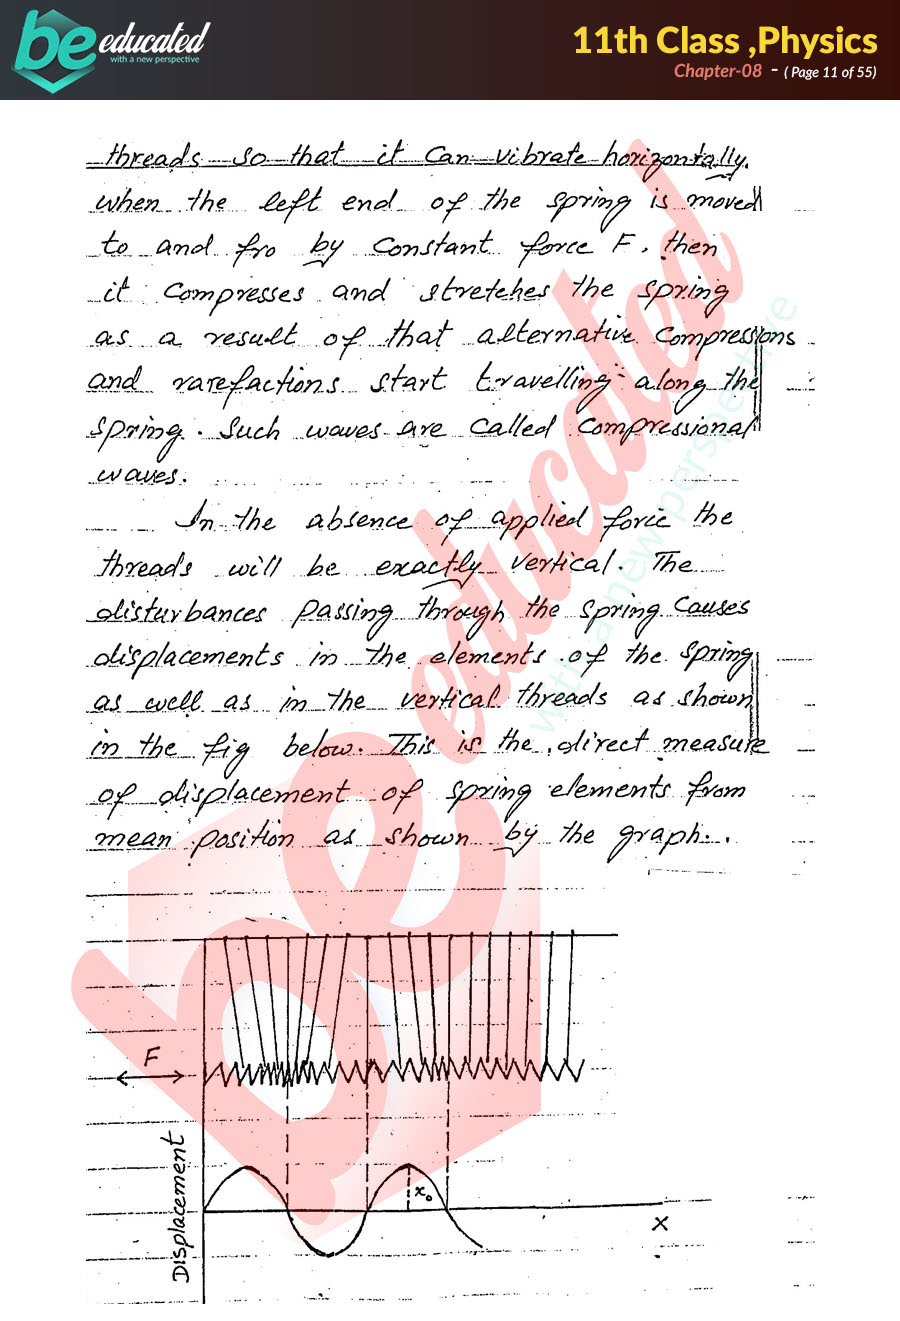 be educated
with a new perspective
11th Class ,Physics
Chapter-08 - ( Page 11 of 55)
threads so that it can vibrate horizontally.
when the left end of the spring is moved
to and fro by constant force F, then
it compresses and stretches the spring
as a result of that alternative compressions
and rarefactions start travelling along the
spring. Such waves are called compressional
waves.
In the absence of applied force the
threads will be exactly vertical. The
disturbances passing through the spring causes
displacements in the elements of the spring
as well as in the vertical threads as shown
in the fig below. This is the direct measure
of displacement of spring elements from
mean position as shown by the graph.
F
Displacement
x₀
X
be educated
with a new perspective